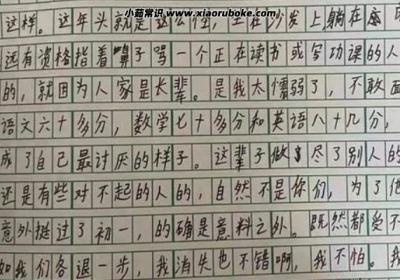 小菇常识 www.xiaoruboke.com
这样。这年头就是这么怪，坐在沙发上躺在
还有资格指着鼻子骂一个正在读书或写功课的人
的，就因为人家是长辈。是我太懦弱了，不敢面
语文六十多分，数学七十多分和英语八十几分，
成了自己最讨厌的样子。这辈子做尽了别人的
还是有些对不起的人的，自然不是你们，为了他
意外挺过了初一，的确是意料之外。既然都受不
如我们各退一步，我消失也不错啊，我不怕。我